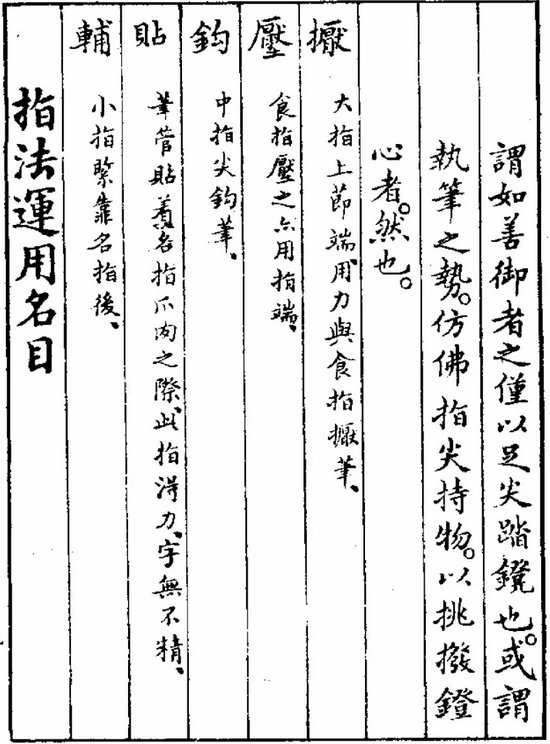 謂如善御者之僅以足尖踏鐙也。或謂
執筆之勢。仿佛指尖持物。以挑撥鐙
心者。然也。
擫 大指上節端、用力與食指擫筆、
壓 食指壓之亦用指端、
鈎 中指尖鈎筆、
貼 筆管貼着名指爪肉之際、此指得力、字無不精、
輔 小指緊靠名指後、
指法運用名目